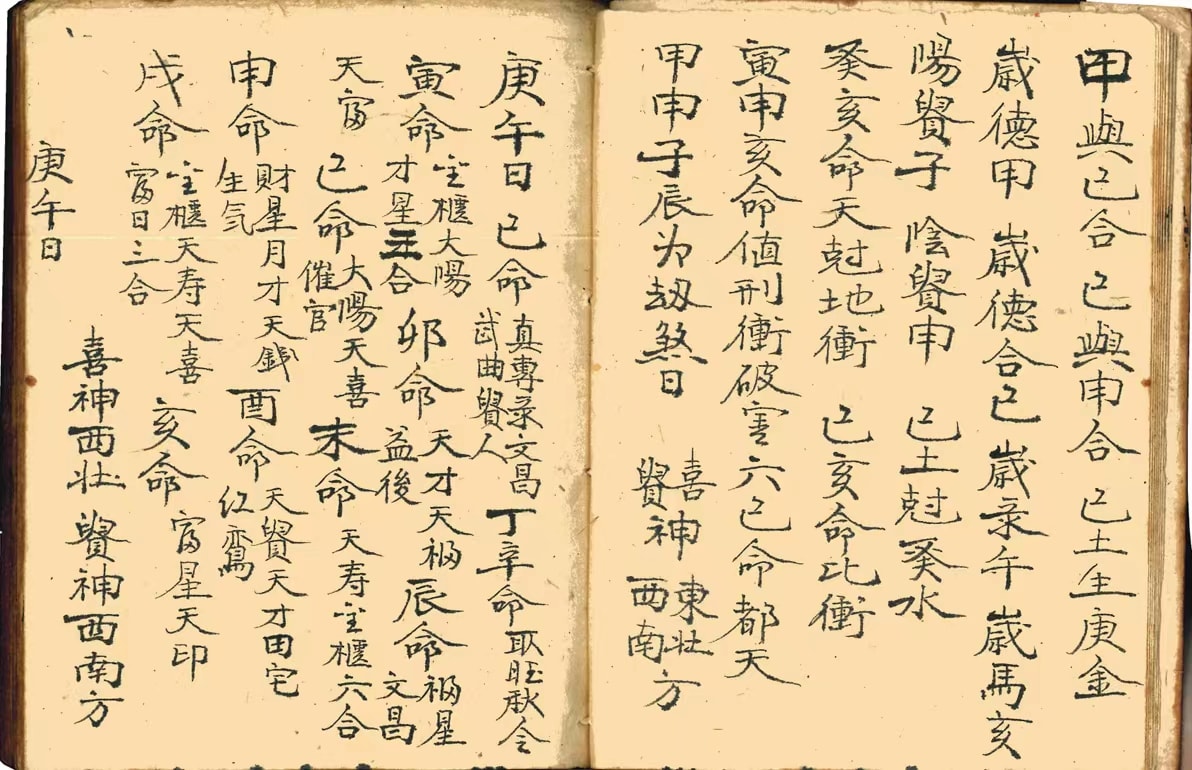 甲與己合 己與甲合 己土生庚金
歲德甲 歲德合己 歲录午 歲馬亥
陽貴子 陰貴申 己土尅癸水
癸亥命天尅地衝 己亥命比衝
寅申亥命值刑衝破害六己命都天
甲申子辰为刼煞日 喜貴神 東北西南方
庚午日 己命 真專录文昌武曲貴人 丁辛命 取旺秋令
寅命 金櫃大陽才星三合 卯命 天才天福益後 辰命 福星文昌
天富 巳命 大陽天喜催官 未命 天寿金櫃六合
申命 財星月才天錢生气 酉命 天貴天才田宅红鸞
戌命 金櫃天寿天喜富日三合 亥命 富星天印
喜神西北 貴神西南方
庚午日